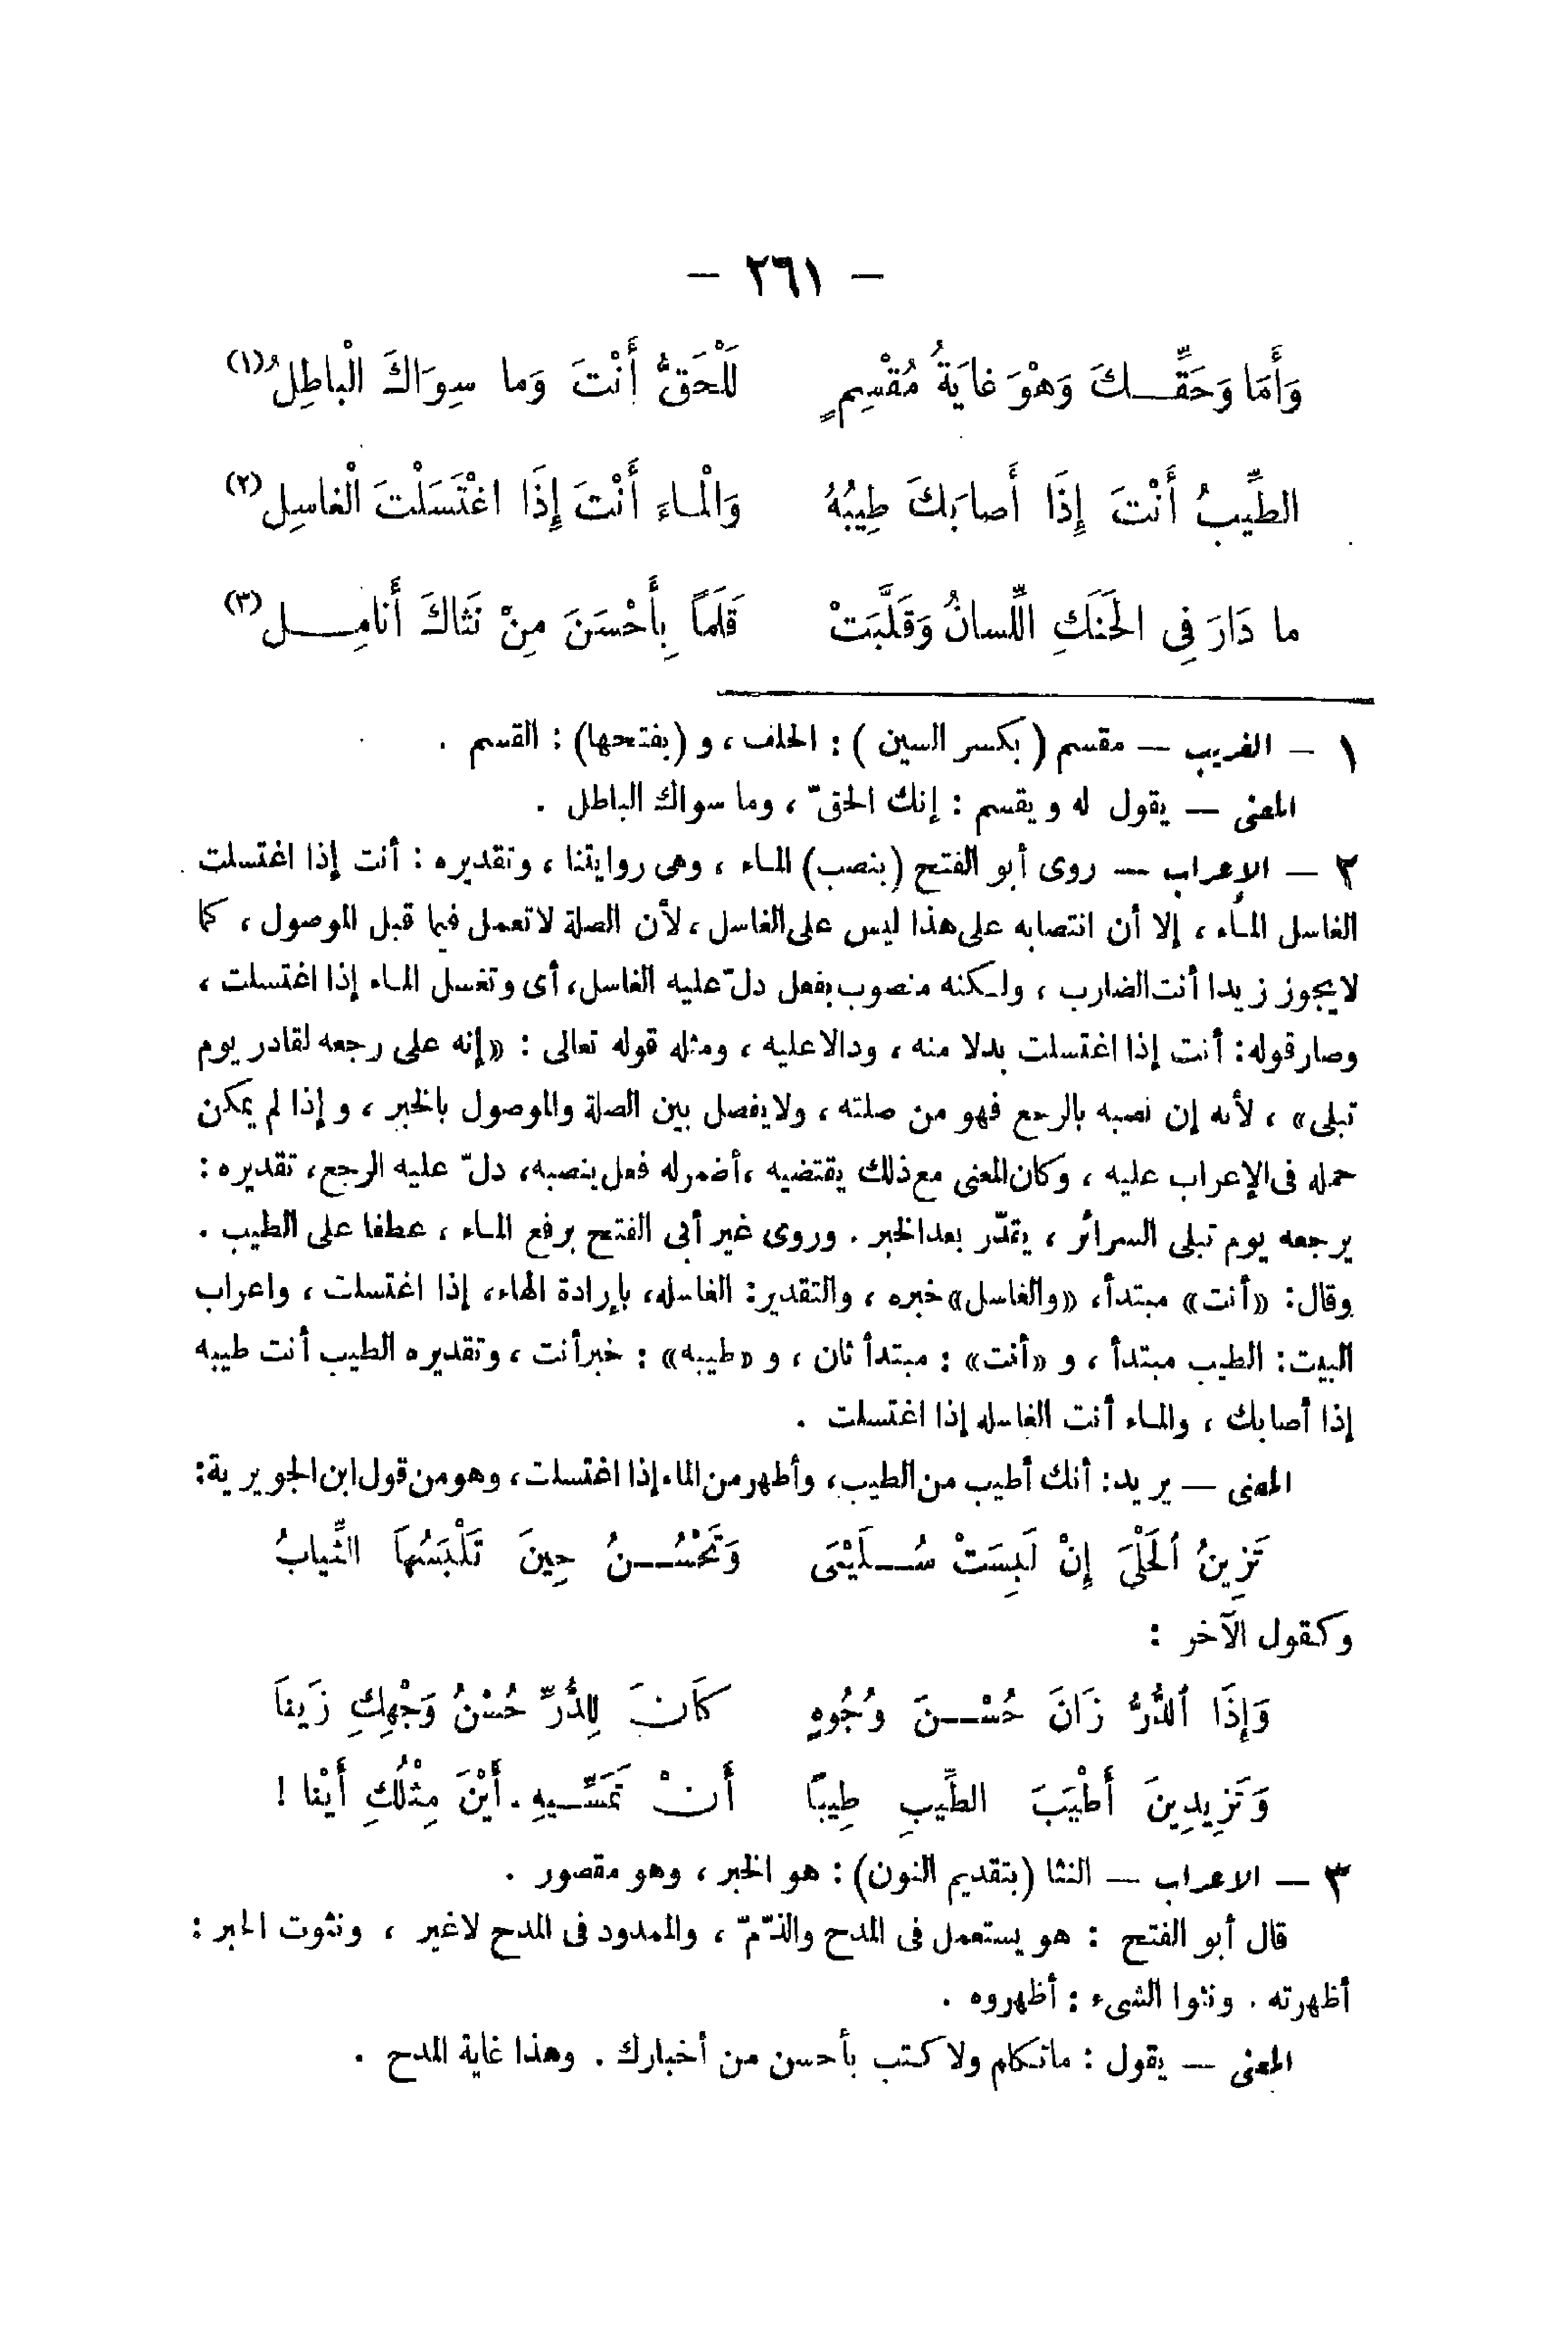 — ٢٦١ —
وَأَمَا وَحَقِّـــكَ وَهْوَ غايَةُ مُقْسِمٍ لَلْحَقُّ أَنْتَ وَما سِوَاكَ الْباطِلُ (١)
الطِّيبُ أَنْتَ إِذَا أَصابَكَ طِيبُهُ وَالْمـاءَ أَنْتَ إِذَا اغْتَسَلْتَ الْغاسِل (٢)
ما دَارَ فِى الحَنَكِ اللِّسانُ وَقَلَّبَتْ قَلَماً بِأَحْسَنَ مِنْ نَثاكَ أَنامِـــل (٣)
١ — الغريب — مقسم ( بكسر السين ) : الحلف ، و (بفتحها) : القسم .
المعنى — يقول له ويقسم : إنك الحقّ ، وما سواك الباطل .
٢ — الإعراب — روى أبو الفتح (بنصب) المـاء ، وهى روايتنا ، وتقديره : أنت إذا اغتسلت
الغاسل المـاء ، إلا أن انتصابه على هذا ليس على الغاسل ، لأن الصلة لا تعمل فيما قبل الموصول ، كما
لا يجوز زيدا أنت الضارب ، ولـكنه منصوب بفعل دلّ عليه الغاسل، أى وتغسل المـاء إذا اغتسلت ،
وصار قوله: أنت إذا اغتسلت بدلا منه ، ودالا عليه ، ومثله قوله تعالى : «إنه على رجعه لقادر يوم
تبلى» ، لأنه إن نصبه بالرجع فهو من صلته ، ولا يفصل بين الصلة والموصول بالخبر ، وإذا لم يمكن
حمله فى الإعراب عليه ، وكان المعنى مع ذلك يقتضيه ، أضمر له فعل ينصبه، دلّ عليه الرجع، تقديره :
يرجعه يوم تبلى السرائر ، يقدّر بعد الخبر . وروى غير أبى الفتح برفع المـاء ، عطفا على الطيب .
وقال: «أنت» مبتدأ، «والغاسل» خبره ، والتقدير: الغاسله، بإرادة الهاء، إذا اغتسلت ، واعراب
البيت: الطيب مبتدأ ، و «أنت» : مبتدأ ثان ، و «طيبه» : خبر أنت ، وتقديره الطيب أنت طيبه
إذا أصابك ، والمـاء أنت الغاسله إذا اغتسلت .
المعنى — يريد: أنك أطيب من الطيب، وأطهر من الماء إذا اغتسلت، وهو من قول ابن الجويرية:
تَزِينُ ٱلحَلْىَ إِنْ لَبِسَتْ سُـــلَيْمَى وَتَحْسُـــنُ حِينَ تَلْبَسُهَا الثِّيابُ
وكقول الآخر :
وَإِذَا ٱلدُّرُّ زَانَ حُسْـــنَ وُجُوهٍ كَانَ لِلدُّرِّ حُسْنُ وَجْهِكِ زَينَا
وَتَزِيدِينَ أَطْيَبَ الطِّيبِ طِيبًا أَنْ تَمَسِّـيهِ . أَيْنَ مِثْلُكِ أَيْنا !
٣ — الاعراب — النثا (بتقديم النون) : هو الخبر ، وهو مقصور .
قال أبو الفتح : هو يستعمل فى المدح والذّمّ ، والممدود فى المدح لاغير ، ونثوت الخبر :
أظهرته . ونثوا الشىء : أظهروه .
المعنى — يقول : ماتكلم ولا كتب بأحسن من أخبارك . وهذا غاية المدح .